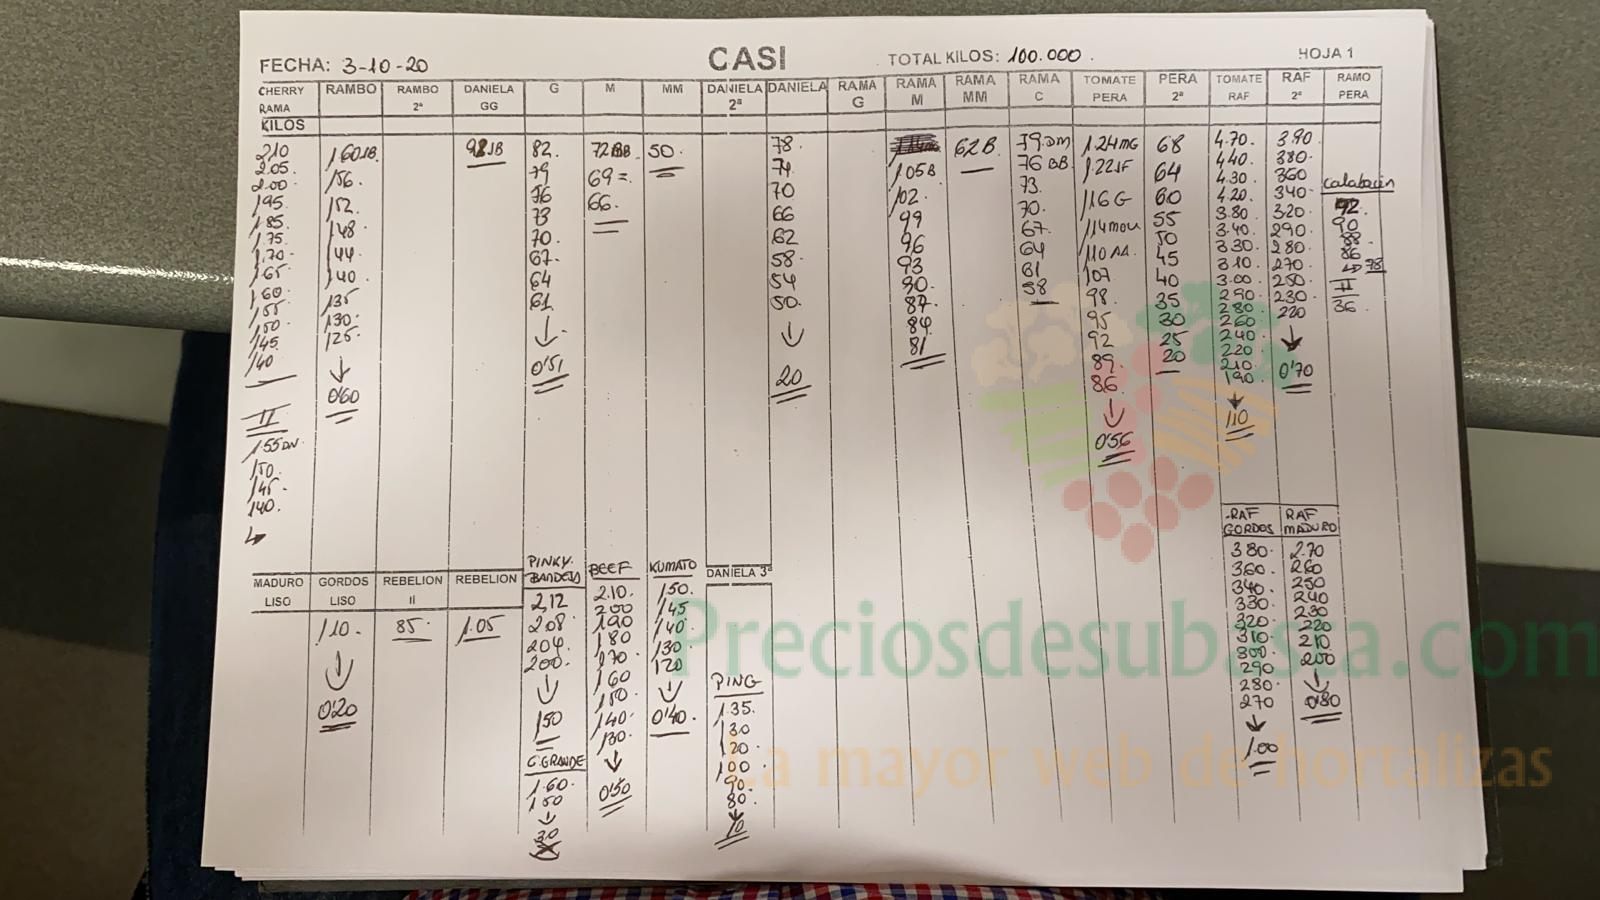 FECHA: 3-10-20
CASI
TOTAL KILOS: 100.000.
HOJA 1
CHERRY RAMA
RAMBO
RAMBO 2ª
DANIELA GG
G
M
MM
DANIELA 2ª
DANIELA
RAMA G
RAMA M
RAMA MM
RAMA C
TOMATE PERA
PERA 2ª
TOMATE RAF
RAF 2ª
RAMO PERA
KILOS
210
205.
200.
195.
185.
1.75.
1.70.
165.
160.
155.
150.
145.
140.
II
155DN.
150.
145.
140.
1.60JB.
156.
152.
148.
144.
140.
135.
130.
125.
0'60
82.
79
76
73
70.
67.
64
61.
0'51
72BB
69=.
66.
50.
78.
74.
70
66
62
58.
54
50.
20
1.05B
102.
99
96
93
90.
87.
84
81
62B
79.DM
76 BB
73.
70.
67.
64
61
58
1.24MG
1.22JF
116 G
114mou
110AA.
107
98.
95
92
89.
86.
0'56
68
64
60
55
50
45
40
35
30
25
20
4.70.
440.
4.30.
4.20.
3.80.
3.40.
330.
3.10
3.00
290
280
260
240
220
210
190.
110
390
380
360
340
320
290
280
270
250
230
220
0'70
Calabacín
92
90
88
86
78
II
36
MADURO LISO
GORDOS LISO
110.
0'20
REBELION II
85.
REBELION
1.05
PINKY. BANDEJA
2,12
208.
204.
200.
150
G.GRANDE
1.60.
150
30
BEEF
2.10.
200
190
180
170
160
150
140.
130.
0'50
KUMATO
150.
145
140
130
120
0'40.
DANIELA 3ª
PING
1.35.
130
120
100
90.
80.
10
RAF GORDOS
380.
360.
340
330.
320.
310.
300.
290
280.
270
1.00
RAF MADURO
2.70
260
250
240
230
220
210
200
0'80
Preciosdesubasta.com
La mayor web de hortalizas